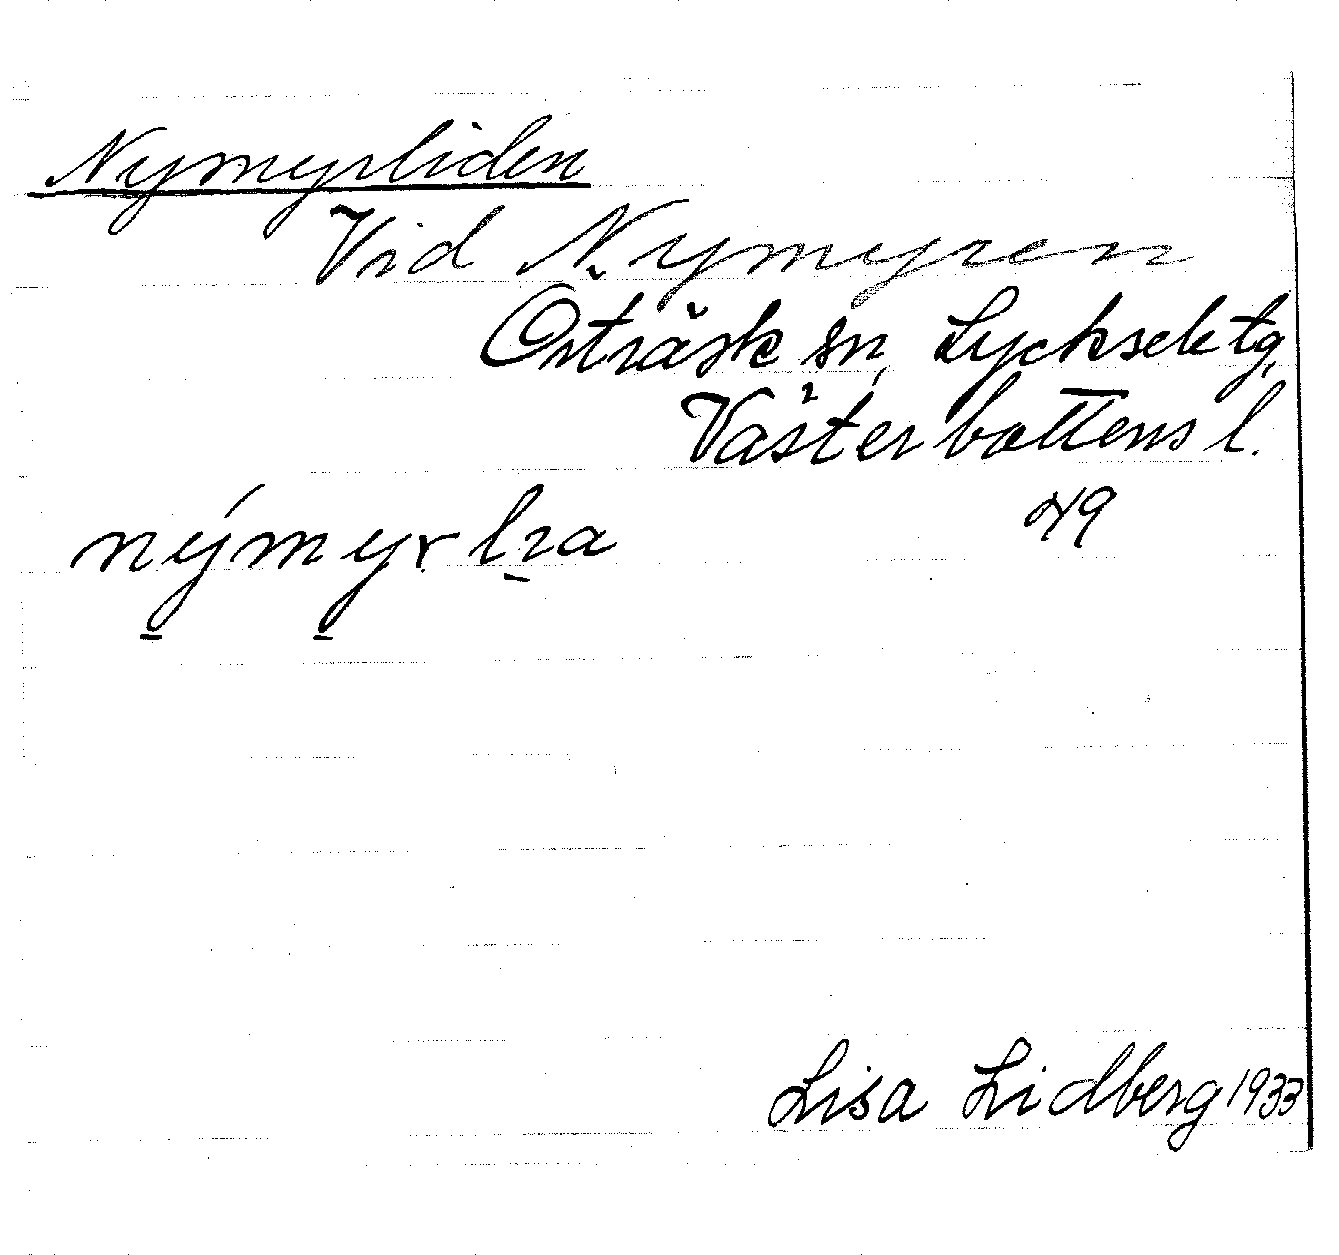 Nymyrliden
Vid Nymyren
Örträsk sn, Lycksele tg,
Västerbottens l.
49
nýmyrlıa
Lisa Lidberg 1933